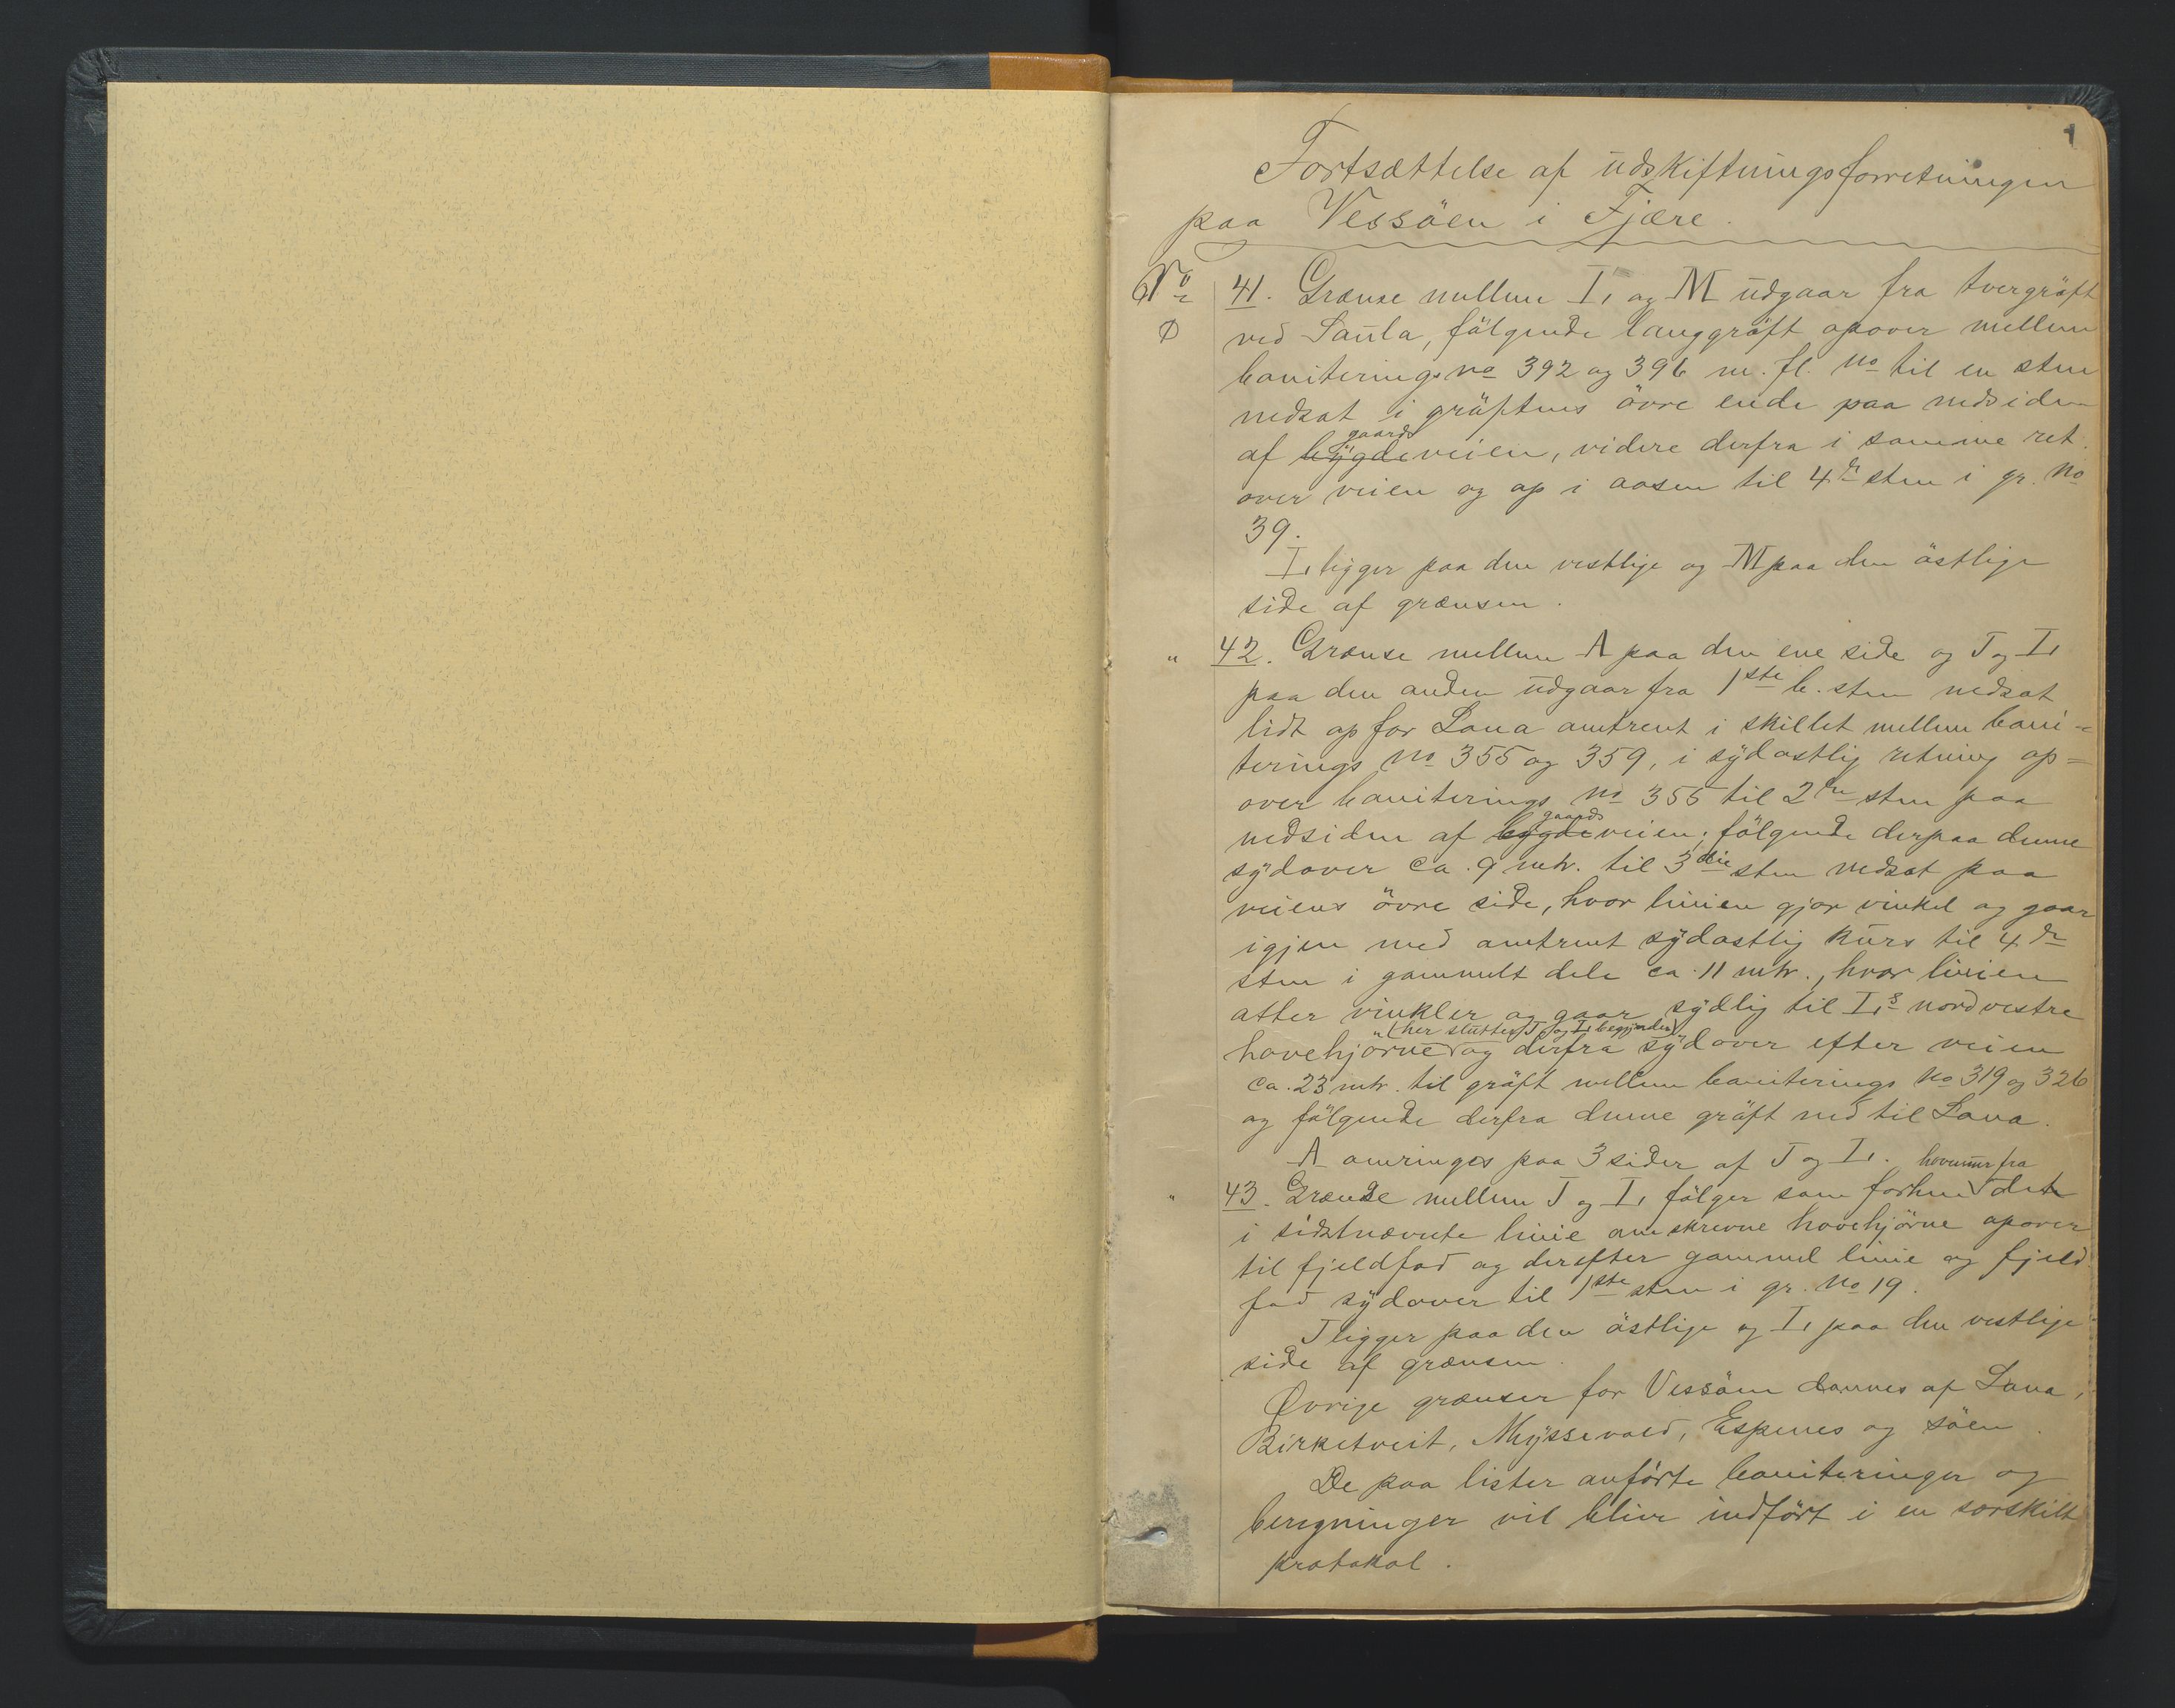 1
Fortsættelse af udskiftningsforretningen
paa Vessöen i Fjære.
No 41. Grænse mellem I₁ og M udgaar fra tvergröft
Ø ved Saula, fölgende langgröft opover mellem
boniterings no 392 og 396 m. fl. no til en sten
nedsat i gröftens övre ende paa nedsiden
gaards
af bygdeveien, videre derfra i samme ret.
over veien og op i aasen til 4de sten i gr. no
39.
I₁ ligger paa den vestlige og M paa den östlige
side af grænsen.
" 42. Grænse mellem A paa den ene side og J og I₁
paa den anden udgaar fra 1ste b. sten nedsat
lidt op for Lona omtrent i skillet mellem boni-
terings no 355 og 359, i sydostlig retning op=
over boniterings no 355 til 2den sten paa
gaards
nedsiden af bygdeveien, fölgende derpaa denne
sydover ca. 9 mtr. til 3die sten nedsat paa
veiens övre side, hvor linien gjör vinkel og gaar
igjen med omtrent sydostlig kurs til 4de
sten i gammelt dele ca. 11 mtr., hvor linien
atter vinkler og gaar sydlig til I₁s nordvestre
(her slutter J og I₁ begynder)
havehjörne og derfra sydover efter veien
ca. 23 mtr. til gröft mellem boniterings no 319 og 326
og fölgende derfra denne gröft ned til Lona.
A omringes paa 3 sider af J og I₁.
" 43. Grænse mellem J og I₁ fölger som forhen det
havemur fra
i sidstnævnte linie omskrevne havehjörne opover
til fjeldfod og derefter gammel linie og fjeld
fod sydover til 1ste sten i gr. no 19.
J ligger paa den östlige og I₁ paa den vestlige
side af grænsen.
Øvrige grænser for Vessöen dannes af Lona,
Birketveit, Myssevold, Espenes og söen.
De paa lister anförte boniteringer og
beregninger vil blive indfört i en særskilt
protokol.